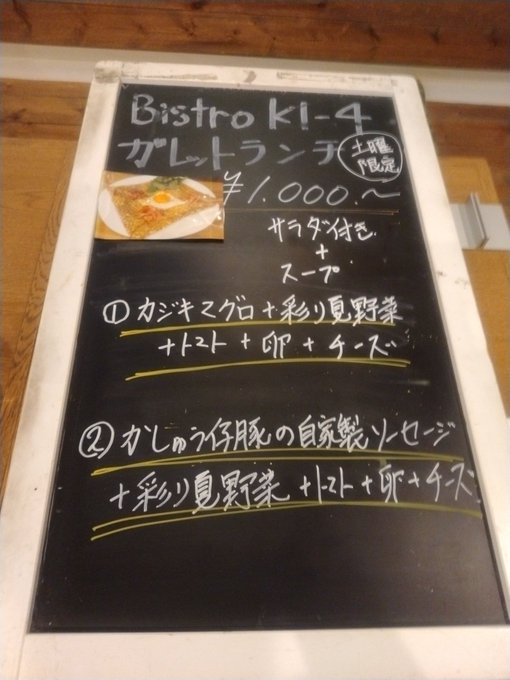 Bistro KI-4
ガレットランチ
土曜
限定
¥1.000.~
サラダ付き
+
スープ
① カジキマグロ+彩り夏野菜
+トマト+卵+チーズ
② かしゅう仔豚の自家製ソーセージ
+彩り夏野菜+トマト+卵+チーズ